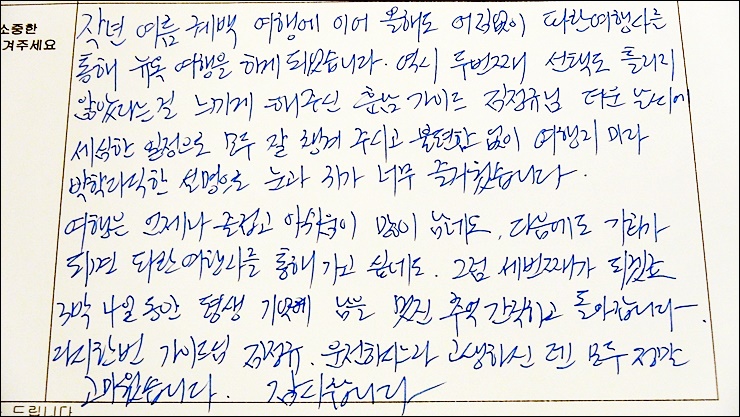 소중한
겨주세요
작년 여름 퀘백 여행에 이어 올해도 어김없이 파란여행사를
통해 뉴욕 여행을 하게 되었습니다. 역시 두번째 선택도 틀리지
않았다는걸 느끼게 해주신 훈남 가이드 김정규님 더운 날씨에
세심한 일정으로 모두 잘 챙겨 주시고 불편함 없이 여행지 마다
박학다식한 설명으로 눈과 귀가 너무 즐거웠습니다.
여행은 언제나 즐겁고 아쉬움이 많이 남네요. 다음에도 기회가
되면 파란여행사를 통해 가고 싶네요. 그럼 세번째가 되겠죠
3박 4일 동안 평생 기억에 남을 멋진 추억 간직하고 돌아갑니다~
다시한번 가이드님 김정규, 운전하시느라 고생하신 모두 정말
고마웠습니다. 감사합니다
드립니다